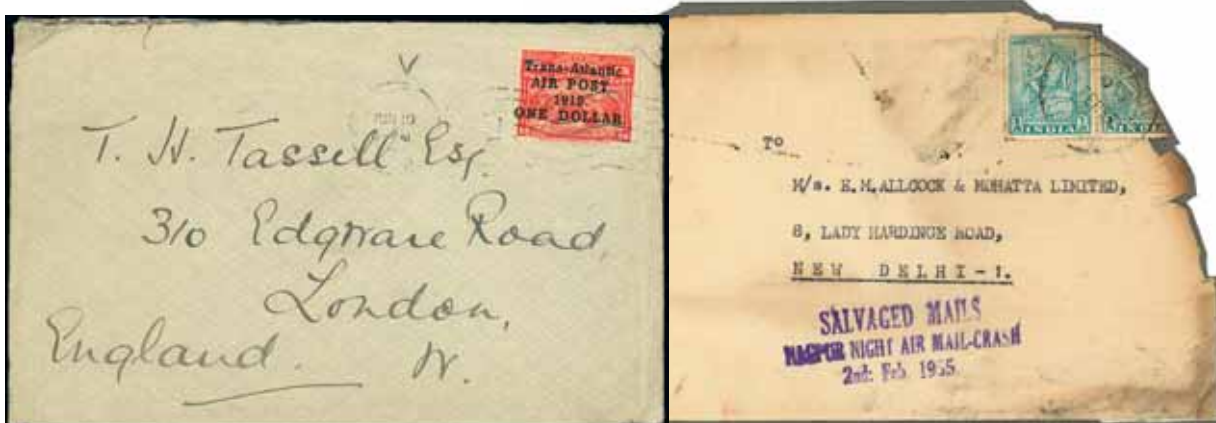 Trans-Atlantic
AIR POST
1919
ONE DOLLAR.
T. H. Tassell Esq.
310 Edgware Road,
London,
England. W.
INDIA
TO
M/s. K.M.ALLCOCK & MOHATTA LIMITED,
8, LADY HARDINGE ROAD,
NEW DELHI-1.
SALVAGED MAILS
NAGPUR NIGHT AIR MAIL-CRASH
2nd. Feb. 1955